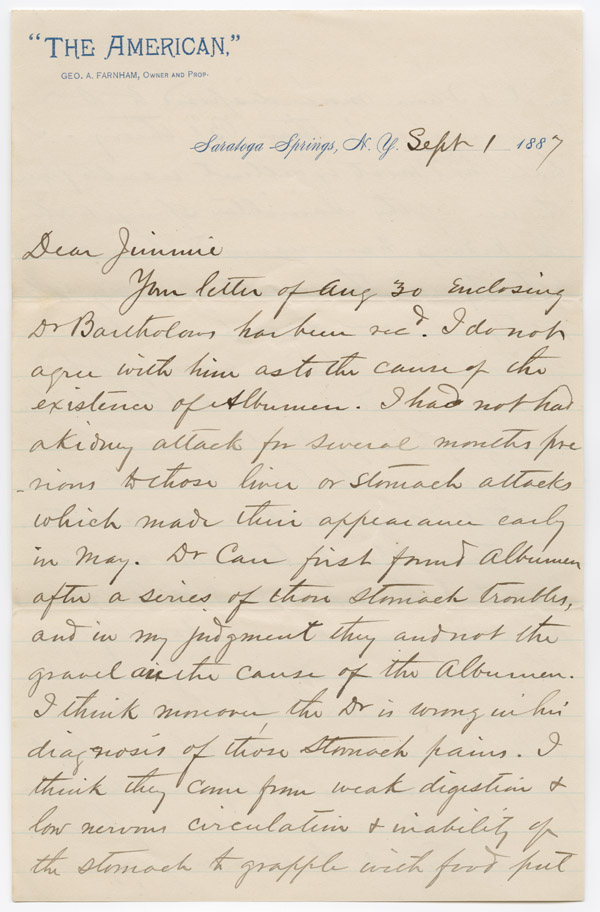 "THE AMERICAN,"
GEO. A. FARNHAM, OWNER AND PROP.
Saratoga Springs, N. Y. Sept 1 1887
Dear Jimmie
Your letter of Aug 30 enclosing
Dr Bartholows has been recd. I do not
agree with him as to the cause of the
existence of Albumen. I had not had
a kidney attack for several months pre
-vious to those liver or stomach attacks
which made their appearance early
in May. Dr Carr first found Albumen
after a series of those stomach troubles,
and in my judgment they and not the
gravel are the cause of the Albumen.
I think moreover, the Dr is wrong in his
diagnosis of those stomach pains. I
think they come from weak digestion &
low nervous circulation & inability of
the stomach to grapple with food put